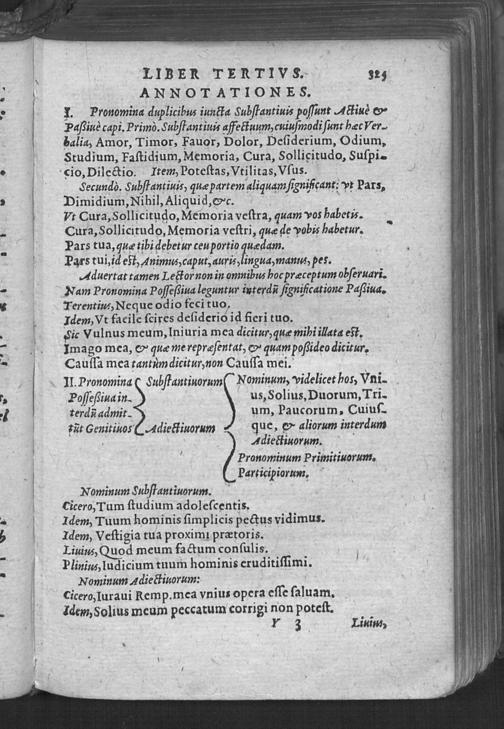 LIBER TERTIVS. 325
ANNOTATIONES.
I. Pronomina duplicibus iuncta Substantiuis possunt Actiuè &
Paßiuè capi. Primò. Substantiuis affectuum, cuiusmodi sunt hæc Ver-
balia, Amor, Timor, Fauor, Dolor, Desiderium, Odium,
Studium, Fastidium, Memoria, Cura, Sollicitudo, Suspi-
cio, Dilectio. Item, Potestas, Vtilitas, Vsus.
Secundò. Substantiuis, quæ partem aliquam significant: vt Pars,
Dimidium, Nihil, Aliquid, &c.
Vt Cura, Sollicitudo, Memoria vestra, quam vos habetis.
Cura, Sollicitudo, Memoria vestri, quæ de vobis habetur.
Pars tua, quæ tibi debetur ceu portio quædam.
Pars tui, id est, Animus, caput, auris, lingua, manus, pes.
Aduertat tamen Lector non in omnibus hoc præceptum obseruari.
Nam Pronomina Possessiua leguntur interdũ significatione Paßiua.
Terentius, Neque odio feci tuo.
Idem, Vt facile scires desiderio id fieri tuo.
Sic Vulnus meum, Iniuria mea dicitur, quæ mihi illata est.
Imago mea, & quæ me repræsentat, & quam poßideo dicitur.
Caussa mea tantùm dicitur, non Caussa mei.
II. Pronomina Substantiuorum Nominum, videlicet hos, Vni-
Poßeßiua in- us, Solius, Duorum, Tri-
terdũ admit- um, Paucorum, Cuius-
tũt Genitiuos Adiectiuorum que, & aliorum interdum
Adiectiuorum.
Pronominum Primitiuorum.
Participiorum.
Nominum Substantiuorum.
Cicero, Tum studium adolescentis.
Idem, Tuum hominis simplicis pectus vidimus.
Idem, Vestigia tua proximi prætoris.
Liuius, Quod meum factum consulis.
Plinius, Iudicium tuum hominis eruditissimi.
Nominum Adiectiuorum:
Cicero, Iuraui Remp. mea vnius opera esse saluam.
Idem, Solius meum peccatum corrigi non potest.
Y 3 Liuius,